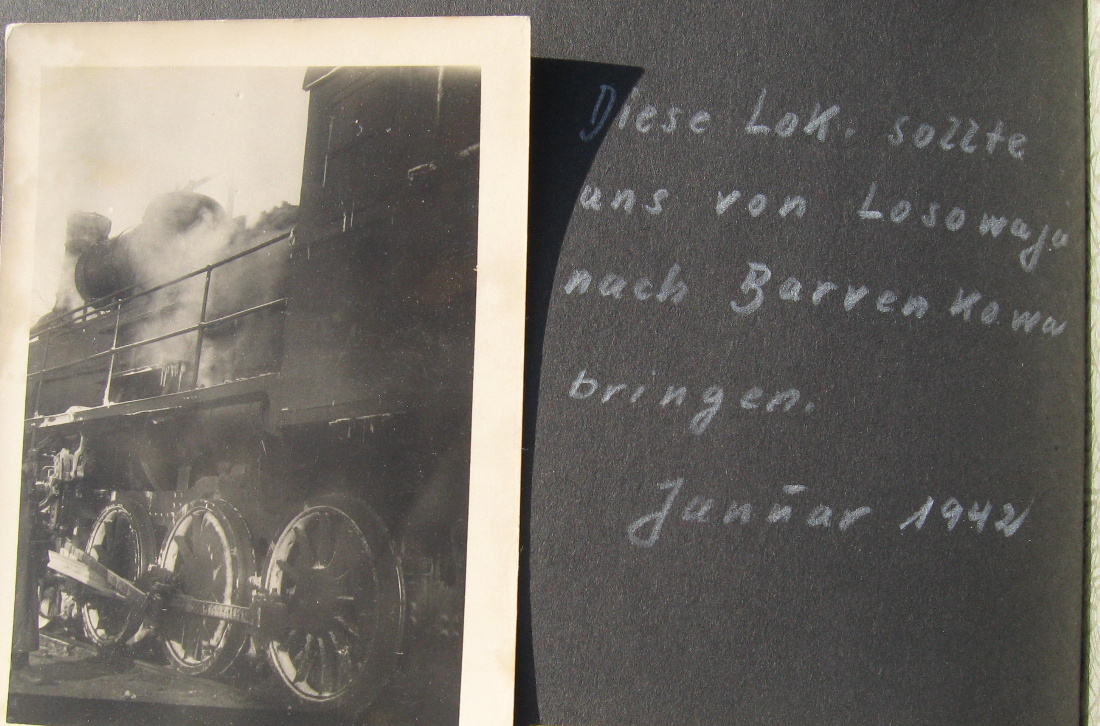 Diese Lok. sollte
uns von Losowaja
nach Barvenkowa
bringen.
Januar 1942